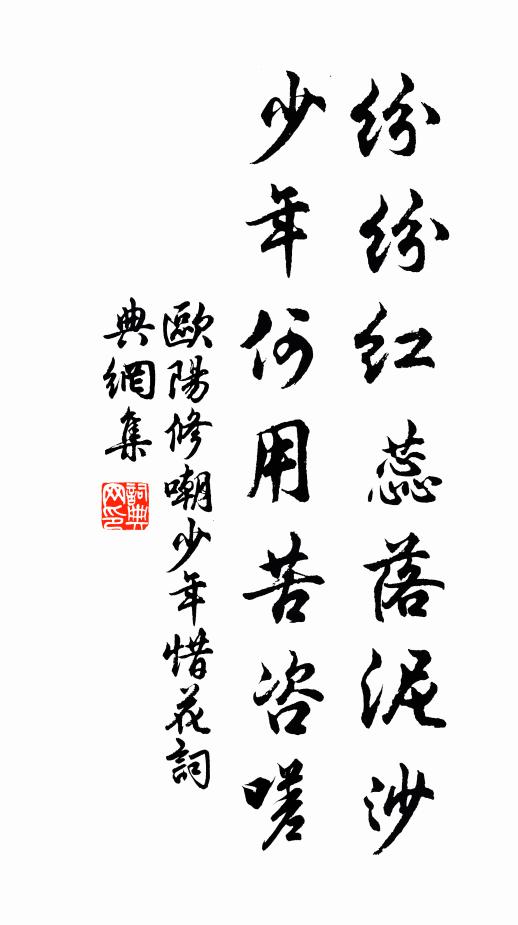 纷纷红蕊落泥沙
少年何用苦咨嗟
歐陽修嘲少年惜花詞
典網集
詞典网印